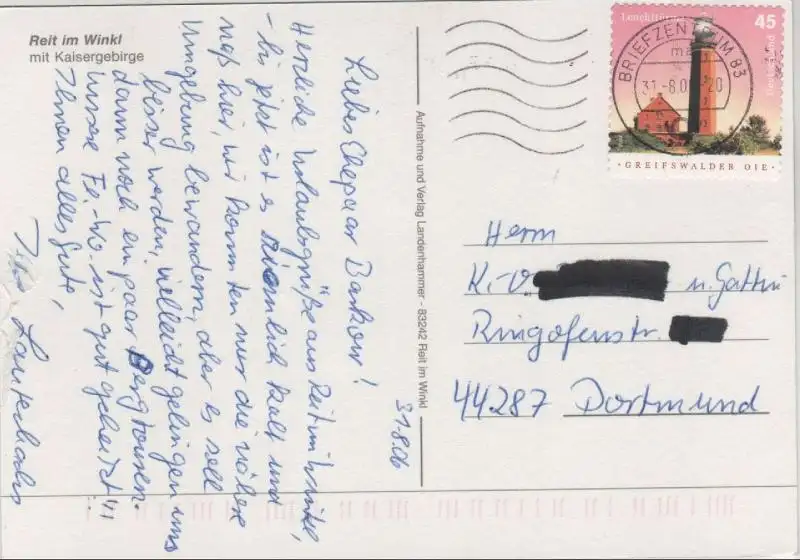 Reit im Winkl
mit Kaisergebirge
31.8.06
Liebes Ehepaar Barkow!
Herzliche Urlaubsgrüße aus Reit im Winkl,
– bis jetzt ist es ziemlich kalt und
naß hier, wir konnten nur die nähere
Umgebung bewandern, aber es soll
besser werden, vielleicht gelingen uns
dann noch ein paar Bergtouren.
Unsere Fe.-Wo. ist gut geheizt!!!
Ihnen alles Gute,
Ihre
Aufnahme und Verlag Landenhammer - 83242 Reit im Winkl
Leuchttürme
45
Deutschland
BRIEFZENTRUM 83
GREIFSWALDER OIE
Herrn
K.-V u. Gattin
Ringofenstr.
44287 Dortmund